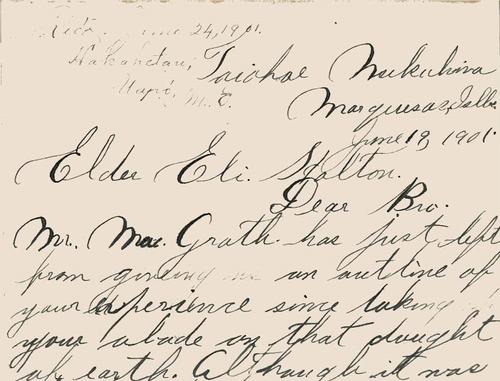 June 24, 1901.
Taiohae Nukuhiva
Marquesas, Islls.
June 19, 1901.
Elder Eli. Holton.
Dear Bro.
Mr. Mac. Grath has just left
from giveing me an outline of
your experience since taking
your abode on that dought
of earth. Although it was